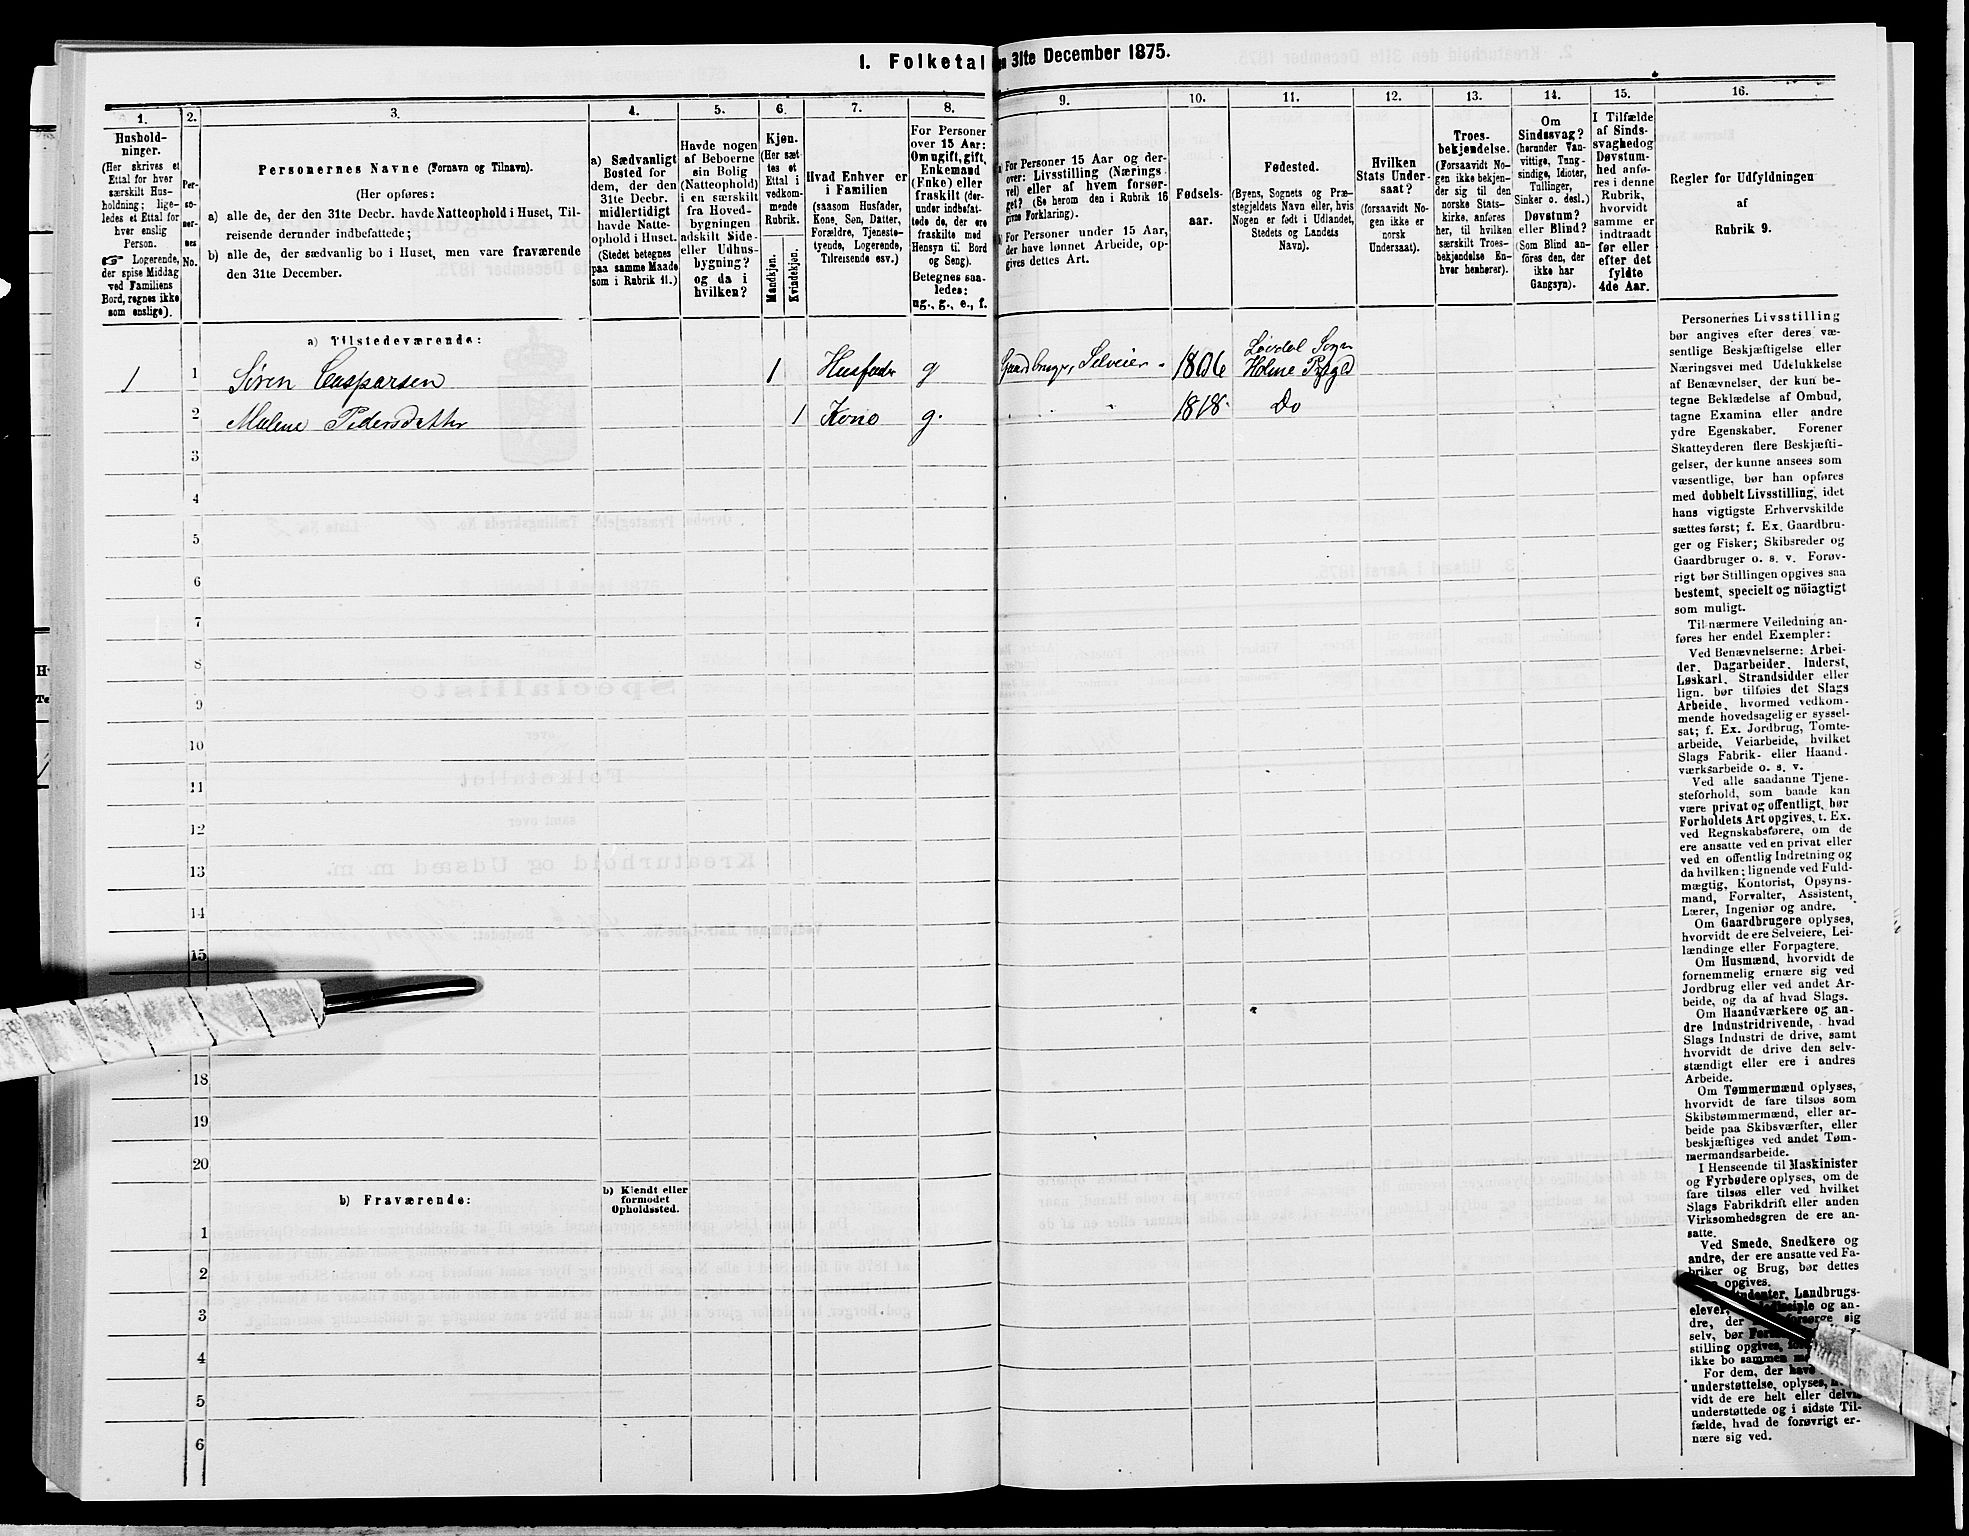 I. Folketal
en 31te December 1875.
1.
2.
3.
4.
5.
6.
7.
8.
9.
10.
11.
12.
13.
14.
15.
16.
Hushold-
ninger.
(Her skrives et
Ettal for hver
særskilt Hus-
holdning; lige-
ledes et Ettal for
hver enslig
Person.
☞ Logerende,
der spise Middag
ved Familiens
Bord, regnes ikke
som enslige).
Per-
so-
ner-
nes
No.
Personernes Navne (Fornavn og Tilnavn).
(Her opføres:
a) alle de, der den 31te Decbr. havde Natteophold i Huset, Til-
reisende derunder indbefattede;
b) alle de, der sædvanlig bo i Huset, men vare fraværende
den 31te December.
a) Sædvanligt
Bosted for
dem, der den
31te Decbr.
midlertidigt
havde Natte-
ophold i Huset.
(Stedet betegnes
paa samme Maade
som i Rubrik 11.)
Havde nogen
af Beboerne
sin Bolig
(Natteophold)
i en særskilt
fra Hoved-
bygningen
adskilt Side-
eller Udhus-
bygning?
og da i
hvilken?
Kjøn.
(Her sæt-
tes et
Ettal i
vedkom-
mende
Rubrik.
Mandkjøn.
Kvindekjøn.
Hvad Enhver er
i Familien
(saasom Husfader,
Kone, Søn, Datter,
Forældre, Tjeneste-
tyende, Logerende,
Tilreisende osv.)
For Personer
over 15 Aar:
Om ugift, gift,
Enkemand
(Enke) eller
fraskilt (der-
under indbefat-
tede de, der ere
fraskilte med
Hensyn til Bord
og Seng).
Betegnes saa-
ledes:
ug., g., e., f.
For Personer 15 Aar og der-
over: Livsstilling (Nærings
vei) eller af hvem forsør-
get? (Se herom den i Rubrik 16
givne Forklaring).
For Personer under 15 Aar,
der have lønnet Arbeide, op-
gives dettes Art.
Fødsels-
aar.
Fødested.
(Byens, Sognets og Præ-
stegjeldets Navn eller, hvis
Nogen er født i Udlandet,
Stedets og Landets
Navn).
Hvilken
Stats Under-
saat?
(forsaavidt No-
gen ikke er
norsk
Undersaat).
Troes-
bekjendelse.
(Forsaavidt No-
gen ikke bekjen-
der sig til den
norske Stats-
kirke, anføres
her, til hvilken
særskilt Troes-
bekjendelse En-
hver henhører).
Om
Sindssvag?
(herunder Van-
vittige, Tung-
sindige, Idioter,
Tullinger,
Sinker o. desl.)
Døvstum?
eller Blind?
(Som Blind an-
føres den, der
ikke har
Gangsyn).
I Tilfælde
af Sinds-
svaghed og
Døvstum-
hed anfø-
res i denne
Rubrik,
hvorvidt
samme er
indtraadt
før eller
efter det
fyldte
4de Aar.
Regler for Udfyldningen
af
Rubrik 9.
a) Tilstedeværende:
1 1 Søren Caspersen 1 Husfader g Gaardbruger, Selveier 1806 Løvdal Sogn
Holme Pgjld
2 Malene Pedersdatter 1 Kone g. 1818 Do
3
4
5
6
7
8
9
10
11
12
13
14
15
18
19
20
b) Fraværende:
b) Kjendt eller
formodet
Opholdssted.
1
2
3
4
5
6
Personernes Livsstilling
bør angives efter deres væ-
sentlige Beskjæftigelse eller
Næringsvei med Udelukkelse
af Benævnelser, der kun be-
tegne Beklædelse af Ombud,
tagne Examina eller andre
ydre Egenskaber. Forener
Skatteyderen flere Beskjæfti-
gelser, der kunne ansees som
væsentlige, bør han opføres
med dobbelt Livsstilling, idet
hans vigtigste Erhvervskilde
sættes først; f. Ex. Gaardbru-
ger og Fisker; Skibsreder og
Gaardbruger o. s. v. Forøv-
rigt bør Stillingen opgives saa
bestemt, specielt og nöiagtigt
som muligt.
Til nærmere Veiledning an-
føres her endel Exempler:
Ved Benævnelserne: Arbei-
der, Dagarbeider, Inderst,
Løskarl, Strandsidder eller
lign. bør tilføies det Slags
Arbeide, hvormed vedkom-
mende hovedsagelig er syssel-
sat; f. Ex. Jordbrug, Tomte-
arbeide, Veiarbeide, hvilket
Slags Fabrik- eller Haand-
værksarbeide o. s. v.
Ved alle saadanne Tjene-
steforhold, som baade kan
være privat og offentligt, bør
Forholdets Art opgives, t. Ex.
ved Regnskabsførere, om de
ere ansatte ved en privat eller
ved en offentlig Indretning og
da hvilken; lignende ved Fuld-
mægtig, Kontorist, Opsyns-
mand, Forvalter, Assistent,
Lærer, Ingeniør og andre.
Om Gaardbrugere oplyses,
hvorvidt de ere Selveiere, Lei-
lændinge eller Forpagtere.
Om Husmænd, hvorvidt de
fornemmelig ernære sig ved
Jordbrug eller ved andet Ar-
beide, og da af hvad Slags.
Om Haandværkere og an-
dre Industridrivende, hvad
Slags Industri de drive, samt
hvorvidt de drive den selv-
stændigt eller ere i andres
Arbeide.
Om Tømmermænd oplyses,
hvorvidt de fare tilsøs som
Skibstømmermænd, eller ar-
beide paa Skibsværfter, eller
beskjæftiges ved andet Tøm-
mermandsarbeide.
I Henseende til Maskinister
og Fyrbødere oplyses, om de
fare tilsøs eller ved hvilket
Slags Fabrikdrift eller anden
Virksomhedsgren de ere an-
satte.
Ved Smede, Snedkere og
andre, der ere ansatte ved Fa-
briker og Brug, bør dettes
opgives.
Landbrugs-
elever, og an-
dre, der sig
selv, bør
stilling opgives,
ikke bo sammen
For dem, der have
understøttelse, oplyses,
vidt de ere helt eller delvis
understøttede og i sidste Til-
fælde, hvad de forøvrigt er-
nære sig ved.